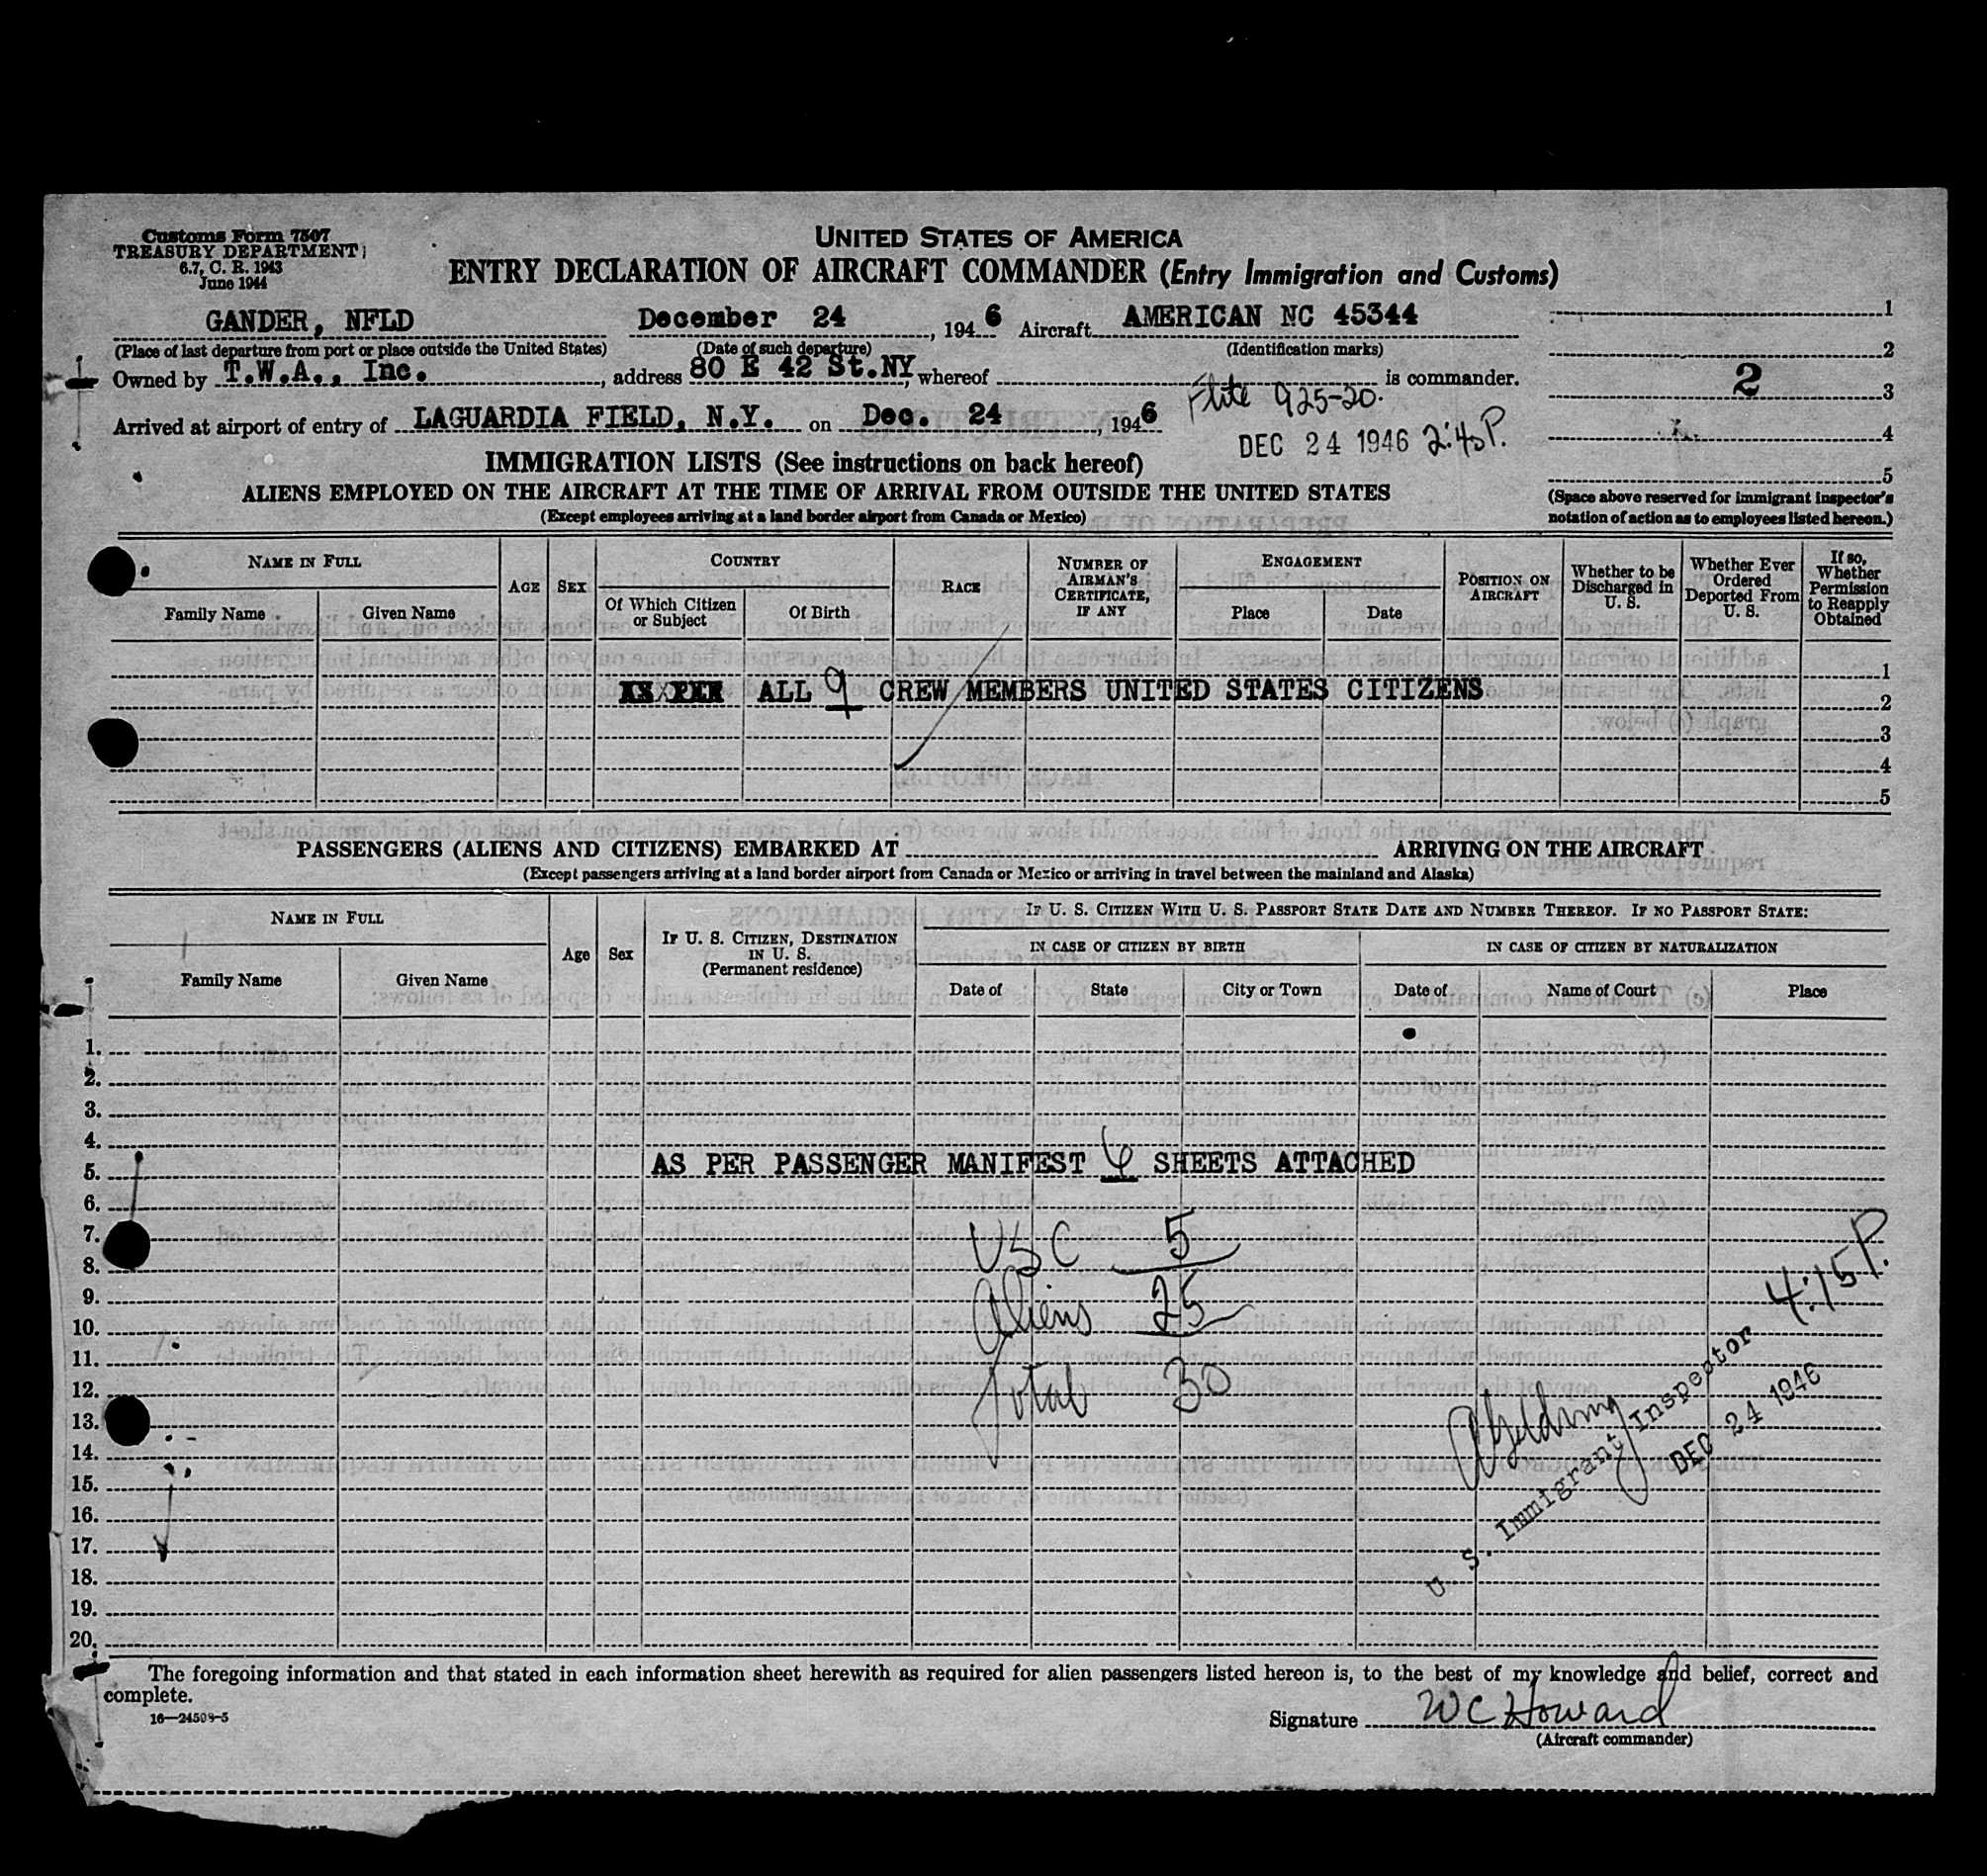 Customs Form 7507
TREASURY DEPARTMENT
6.7, C. R. 1943
June 1944
UNITED STATES OF AMERICA
ENTRY DECLARATION OF AIRCRAFT COMMANDER (Entry Immigration and Customs)
GANDER, NFLD December 24, 1946 Aircraft AMERICAN NC 45344
(Place of last departure from port or place outside the United States) (Date of such departure) (Identification marks)
Owned by T.W.A., Inc., address 80 E 42 St.NY, whereof is commander.
Flite 925-20.
Arrived at airport of entry of LAGUARDIA FIELD, N.Y. on Dec. 24, 1946
DEC 24 1946 2:40 P.
1
2
2
3
4
5
(Space above reserved for immigrant inspector's
notation of action as to employees listed hereon.)
IMMIGRATION LISTS (See instructions on back hereof)
ALIENS EMPLOYED ON THE AIRCRAFT AT THE TIME OF ARRIVAL FROM OUTSIDE THE UNITED STATES
(Except employees arriving at a land border airport from Canada or Mexico)
NAME IN FULL
Family Name
Given Name
AGE
SEX
COUNTRY
Of Which Citizen
or Subject
Of Birth
RACE
NUMBER OF
AIRMAN'S
CERTIFICATE,
IF ANY
ENGAGEMENT
Place
Date
POSITION ON
AIRCRAFT
Whether to be
Discharged in
U. S.
Whether Ever
Ordered
Deported From
U. S.
If so,
Whether
Permission
to Reapply
Obtained
1
ALL 9 CREW MEMBERS UNITED STATES CITIZENS
2
3
4
5
PASSENGERS (ALIENS AND CITIZENS) EMBARKED AT ARRIVING ON THE AIRCRAFT
(Except passengers arriving at a land border airport from Canada or Mexico or arriving in travel between the mainland and Alaska)
NAME IN FULL
Family Name
Given Name
Age
Sex
IF U. S. CITIZEN, DESTINATION
IN U. S.
(Permanent residence)
IF U. S. CITIZEN WITH U. S. PASSPORT STATE DATE AND NUMBER THEREOF. IF NO PASSPORT STATE:
IN CASE OF CITIZEN BY BIRTH
IN CASE OF CITIZEN BY NATURALIZATION
Date of
State
City or Town
Date of
Name of Court
Place
1.
2.
3.
4.
5. AS PER PASSENGER MANIFEST 6 SHEETS ATTACHED
6.
7. USC 5
8.
9. Aliens 25
10.
11.
12. Total 30
13.
14.
15.
16.
17.
18.
19.
20.
4:15 P.
U. S. Immigrant Inspector
DEC 24 1946
The foregoing information and that stated in each information sheet herewith as required for alien passengers listed hereon is, to the best of my knowledge and belief, correct and
complete.
16—24509-5
Signature WC Howard
(Aircraft commander)